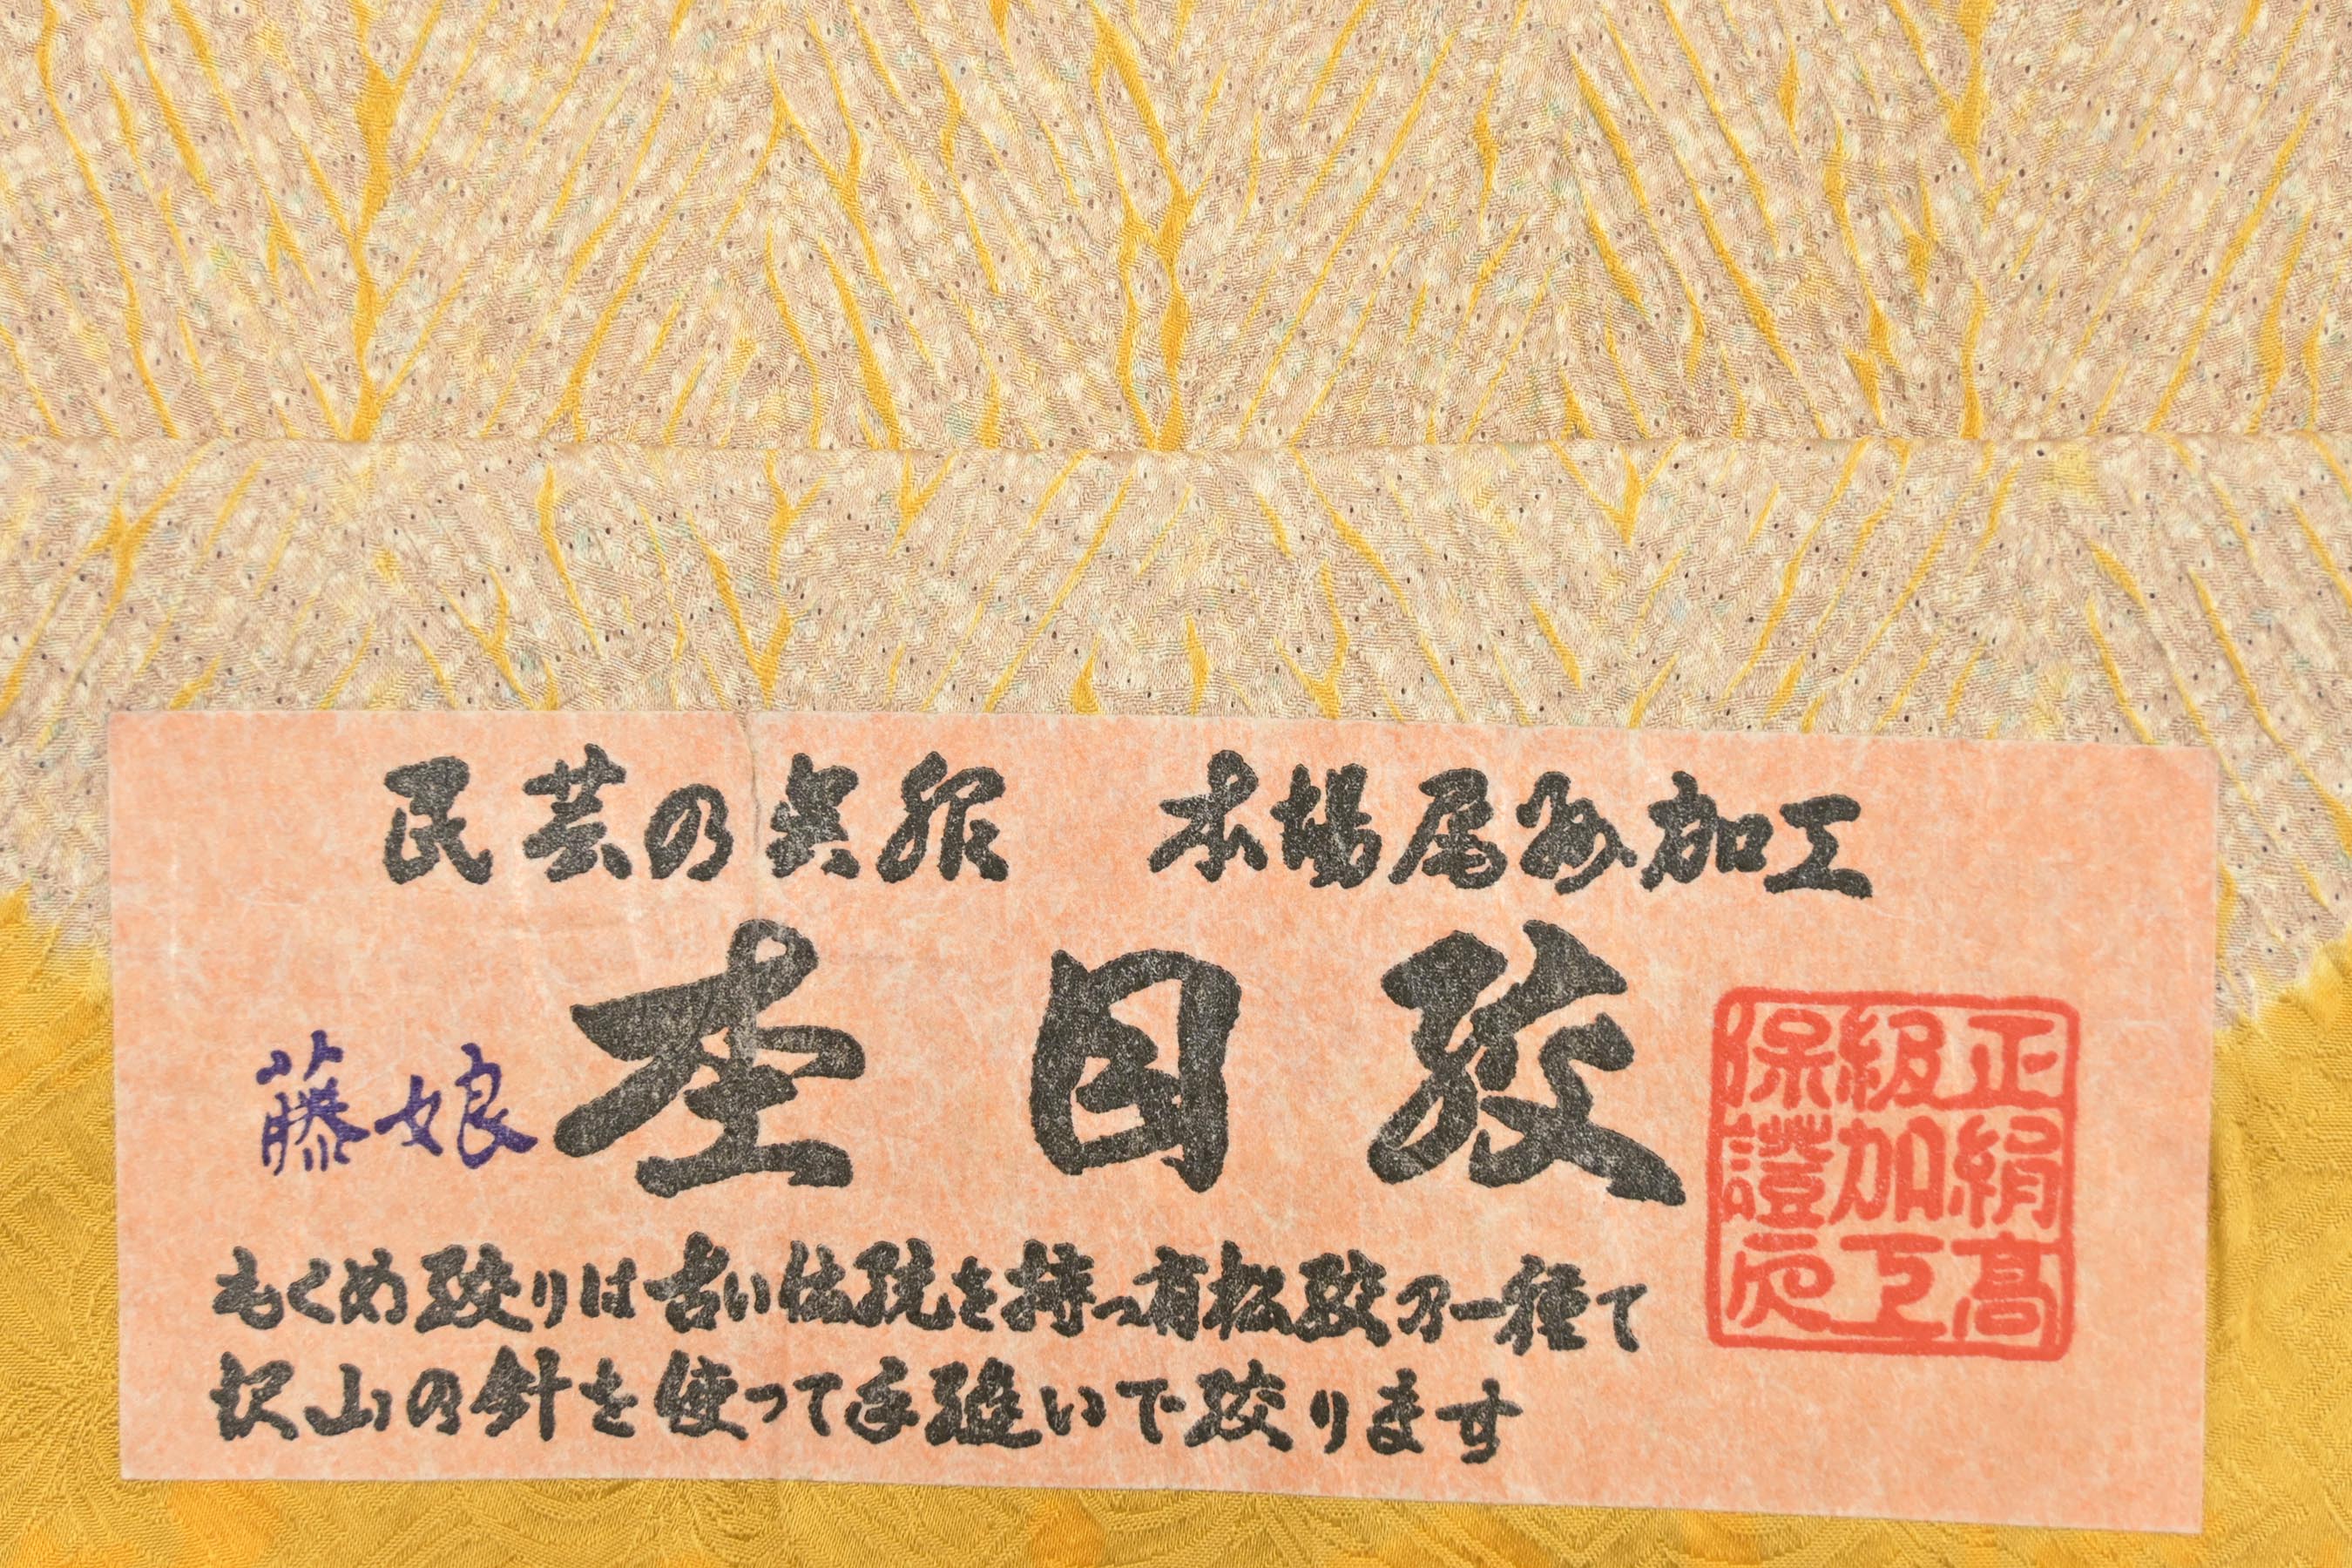 民芸の呉服　本場尾州加工
藤娘
杢目絞
もくめ絞りは古い伝統を持つ有松絞の一種で
沢山の針を使って手縫いで絞ります
正絹高
級加工
保證之